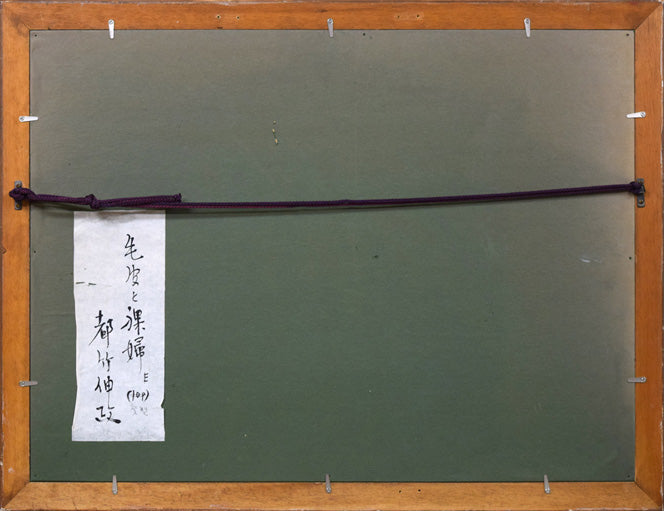 毛皮と裸婦 E
(10P)
都竹伸政